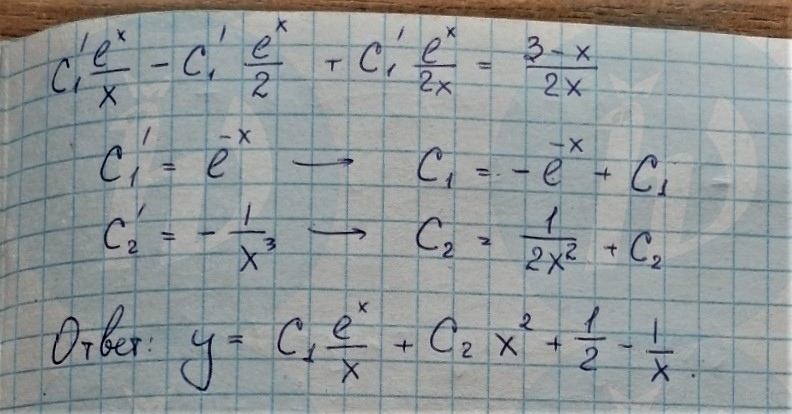 C₁′ eˣ/x − C₁′ eˣ/2 + C₁′ eˣ/2x = 3−x/2x
C₁′ = e⁻ˣ → C₁ = −e⁻ˣ + C₁
C₂′ = −1/x³ → C₂ = 1/2x² + C₂
Ответ: y = C₁ eˣ/x + C₂ x² + 1/2 − 1/x.